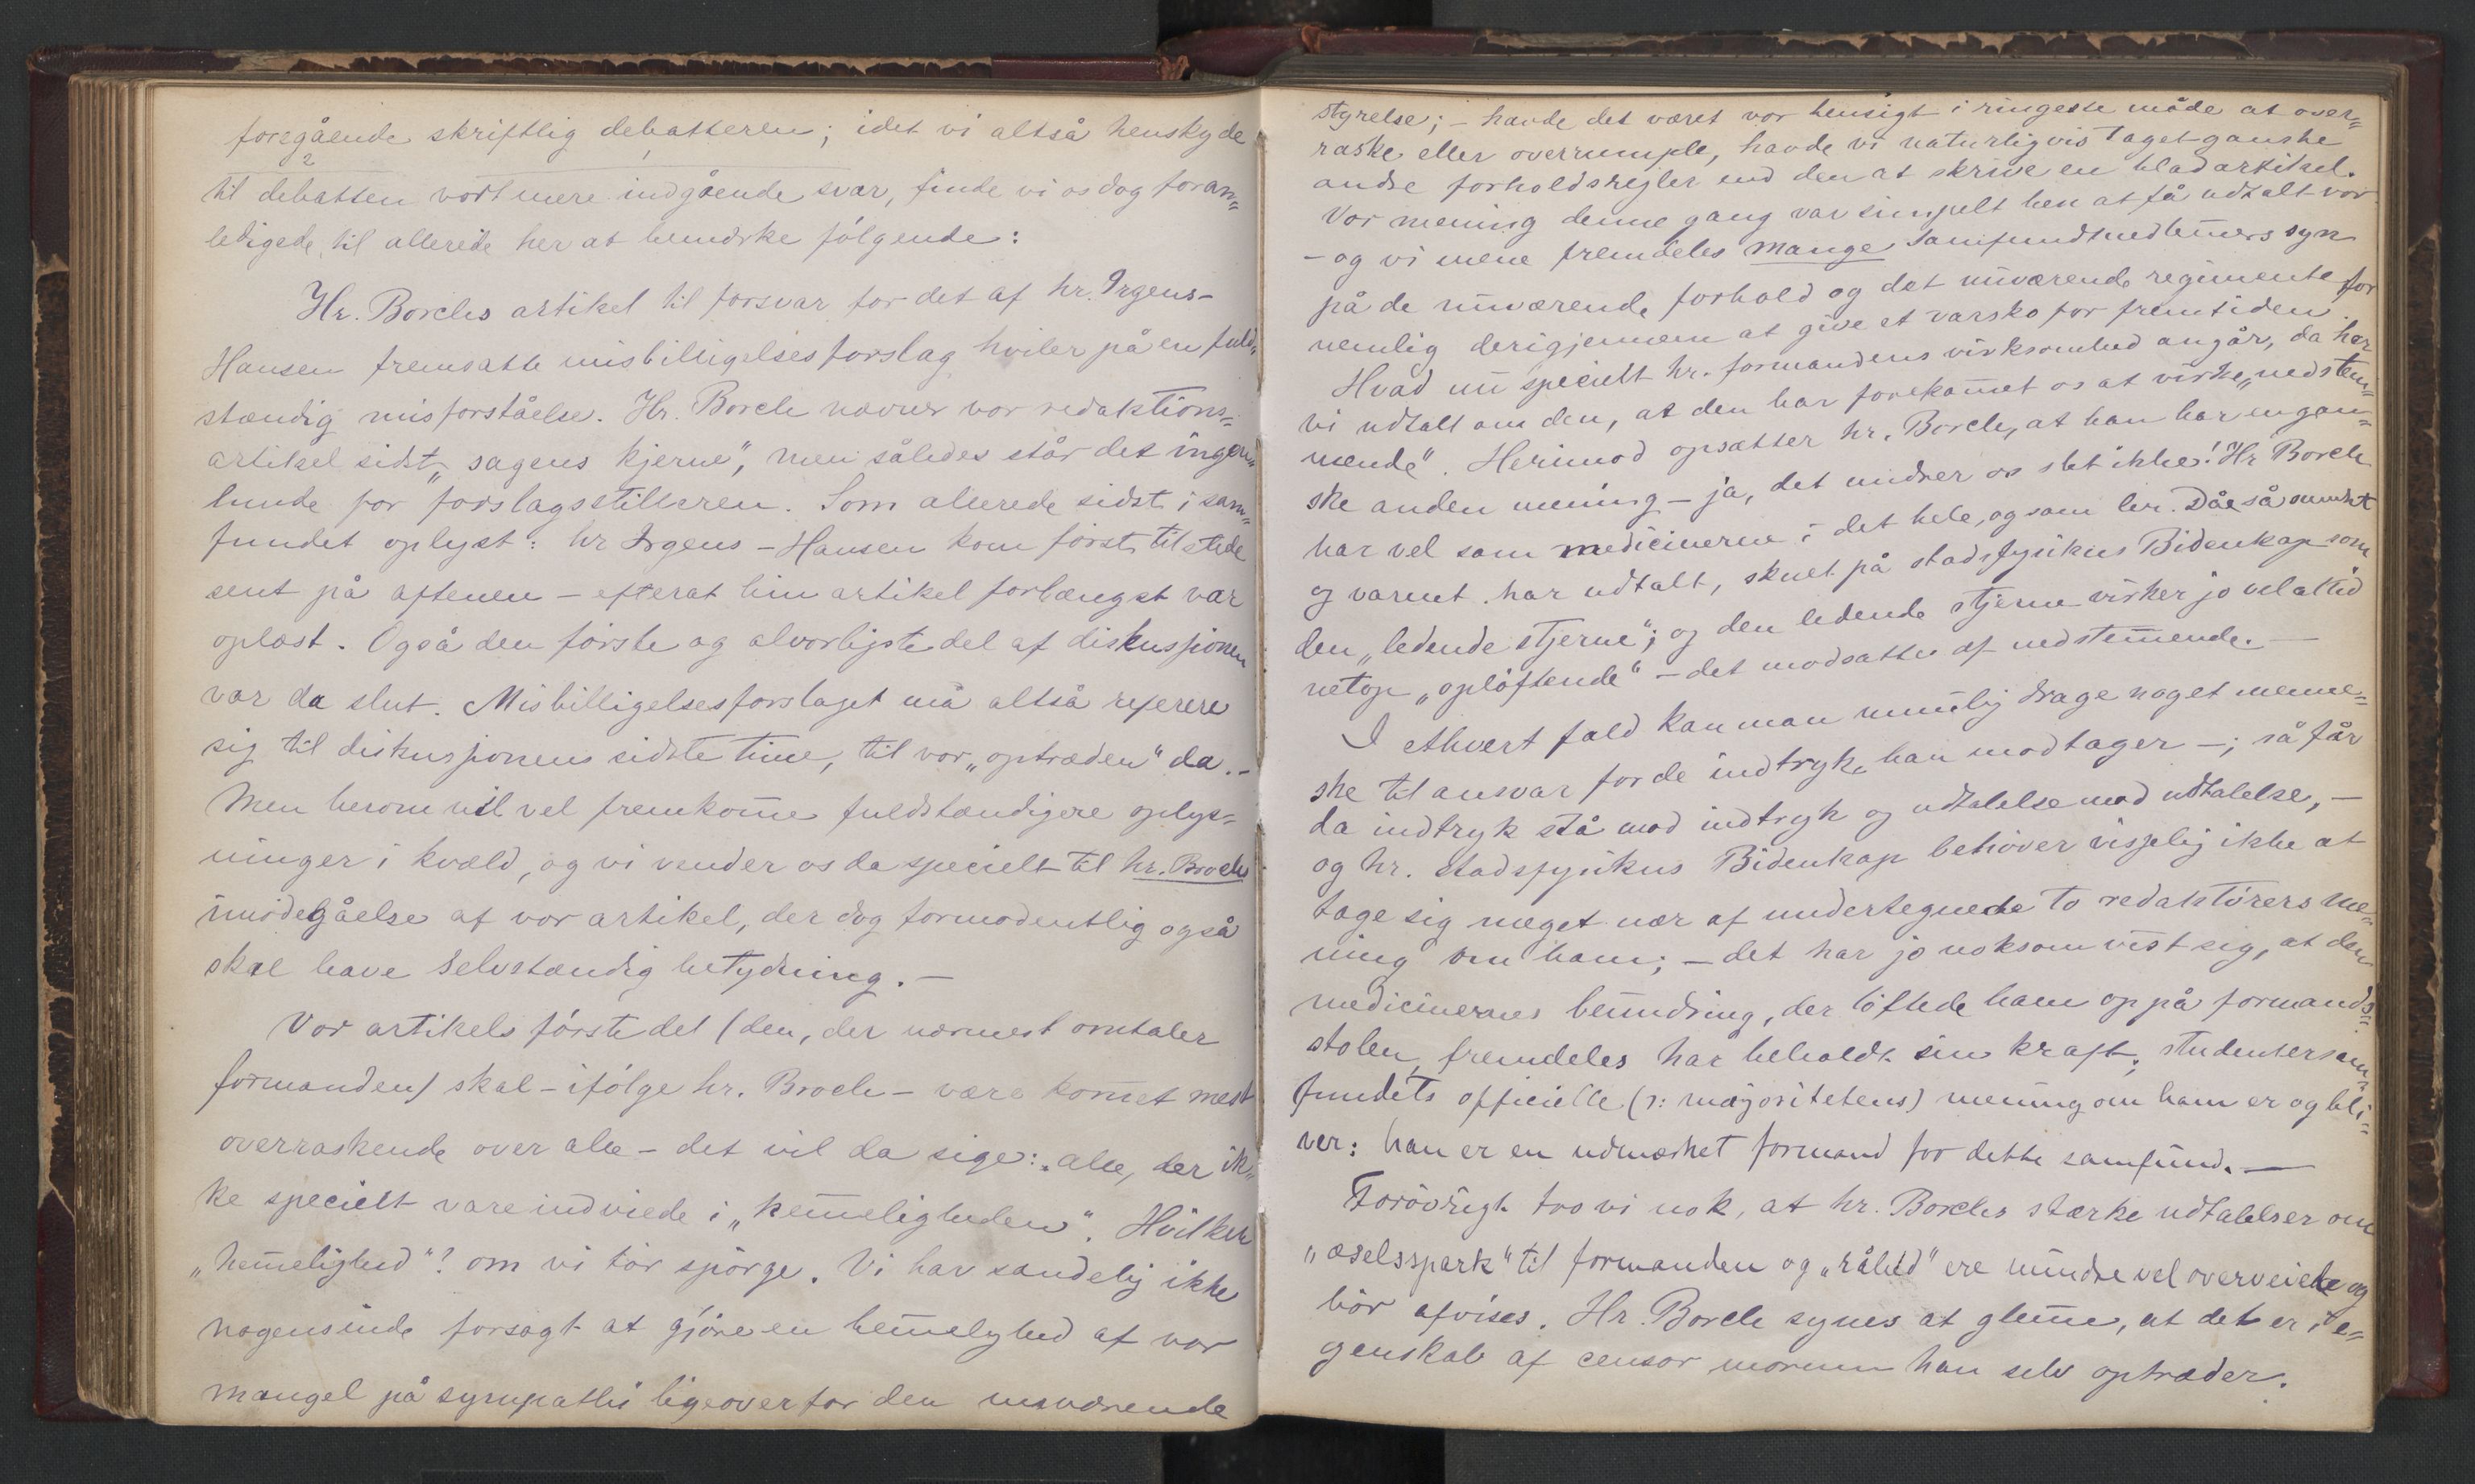 foregående skriftlig debatteren; idet vi altså henskyde
til debatten vort mere indgående svar, finde vi os dog foran=
ledigede til allerede her at bemærke følgende:
Hr. Borchs artikel til forsvar for det af hr. Irgens-
Hansen fremsatte misbilligelsesforslag hviler på en fuld=
stændig misforståelse. Hr. Borch nævner vor redaktions=
artikel sidst „sagens kjerne“, men således står det ingen=
lunde for forslagsstilleren. Som allerede sidst i sam=
fundet oplyst: hr Irgens-Hansen kom først tilstede
sent på aftenen – efterat hin artikel forlængst var
oplæst. Også den første og alvorligste del af diskussjonen
var da slut. Misbilligelsesforslaget må altså referere
sig til diskussjonens sidste time, til vor „optræden“ da. –
Men herom vil vel fremkom̄e fuldstændigere oplys=
ninger i kvæld, og vi vender os da specielt til hr. Brochs
imødegåelse af vor artikel, der dog formodentlig også
skal have selvstændig betydning. –
Vor artikels første del (den, der nærmest omtaler
formanden) skal – ifølge hr. Broch – være kom̄et mest
overraskende over alle – det vil da sige: alle, der ik=
ke specielt vare indviede i „hem̄eligheden“. Hvilken
„hem̄elighed“? om vi tør spørge. Vi har sandelig ikke
nogensinde forsøgt at gjøre en hem̄elighed af vor
mangel på sympathi ligeoverfor den nuværende
styrelse; – havde det været vor hensigt i ringeste måde at over=
raske eller overrumple, havde vi naturligvis taget ganske
andre forholdsregler end den at skrive en bladartikel.
Vor mening denne gang var simpelt hen at få udtalt vor
– og vi mene fremdeles mange samfundmedlem̄ers syn
på de nuværende forhold og det nuværende regimente for
nemlig derigjennem at give et varsko for fremtiden.
Hvad nu specielt hr. formandens virksomhed angår, da har
vi udtalt om den, at den har forekom̄et os at virke „nedstem̄=
mende“. Herimod opsætter hr. Borch, at han har en gan=
ske anden mening – ja, det undrer os slet ikke! Hr Borch
har vel som medicinerne i det hele, og som hr. Dåe så smukt
og varmt har udtalt, skuet på stadsfysikus Bidenkap som
den „ledende stjerne“; og den ledende stjerne virker jo vel altid
netop „opløftende“ – det modsatte af nedstem̄ende. –
I ethvert fald kan man umulig drage noget menne=
ske til ansvar for de indtryk, han modtager –; så får
da indtryk stå mod indtryk og udtalelse mod udtalelse, –
og hr. stadsfysikus Bidenkap behøver visselig ikke at
tage sig meget nær af undertegnede to redaktørers me=
ning om ham; – det har jo noksom vist sig, at den
medicinernes beundring, der løftede ham op på formands=
stolen, fremdeles har beholdt sin kraft; studentersam=
fundets officielle (ɔ: majoritetens) mening om ham er og bli=
ver: han er en udmærket formand for dette samfund. –
Forøvrigt tro vi nok, at hr. Borchs stærke udtalelser om
„æselsspark“ til formanden og „råhed“ ere mindre vel overveiede og
bør afvises. Hr. Borch synes at glem̄e, at det er i e=
genskab af censor morum han selv optræder.